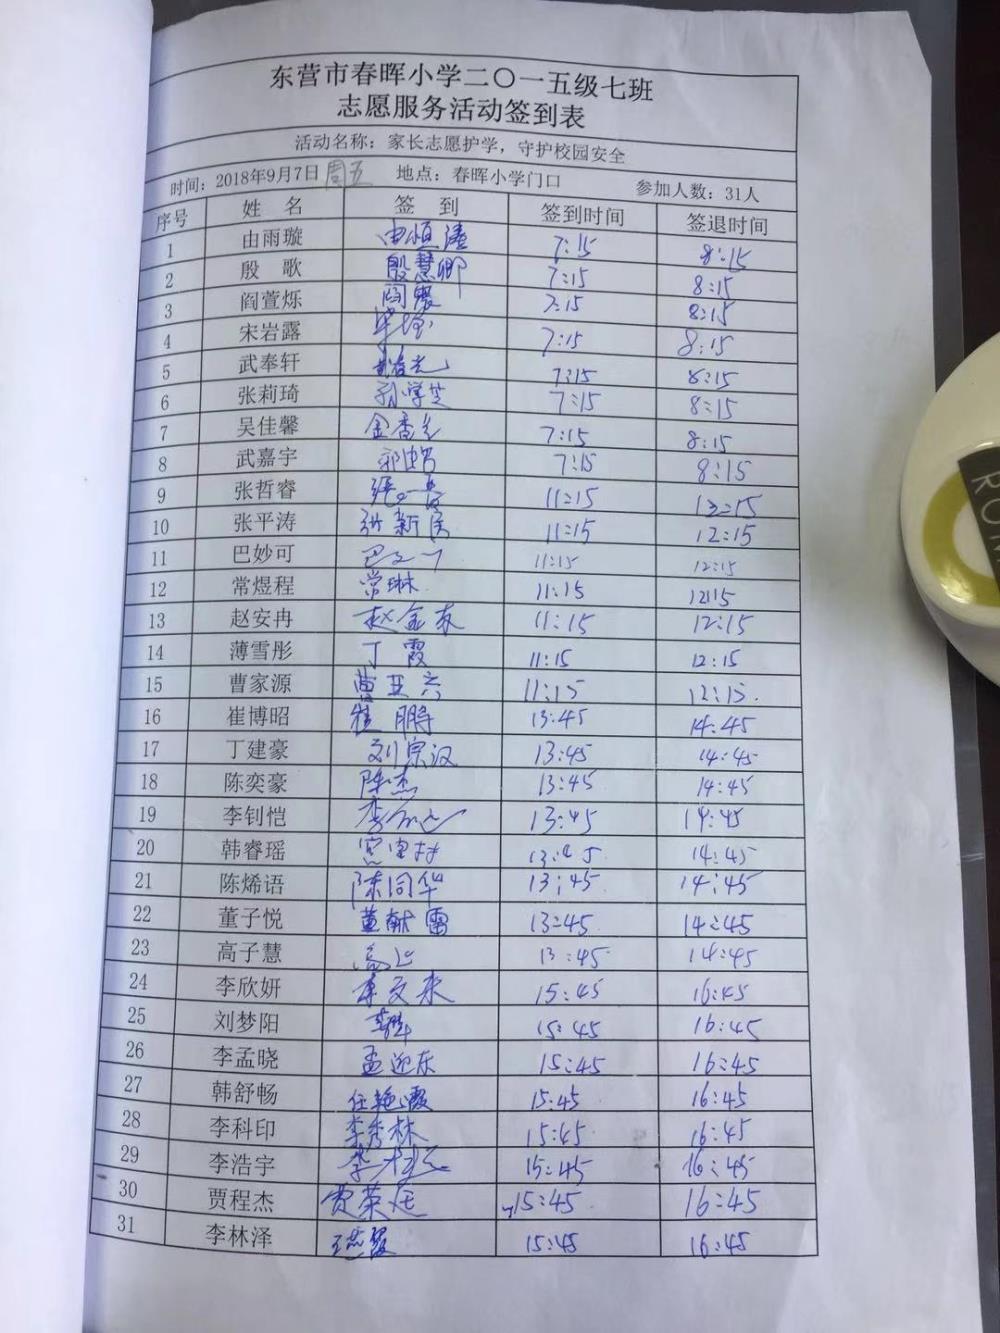 东营市春晖小学二〇一五级七班
志愿服务活动签到表
活动名称：家长志愿护学，守护校园安全
时间：2018年9月7日 周五 地点：春晖小学门口 参加人数：31人
序号 姓 名 签 到 签到时间 签退时间
1 由雨璇 由恒涛 7:15 8:15
2 殷 歌 殷慧卿 7:15 8:15
3 阎萱烁 阎震 7:15 8:15
4 宋岩露 7:15 8:15
5 武奉轩 7:15 8:15
6 张莉琦 孙学芝 7:15 8:15
7 吴佳馨 金香兰 7:15 8:15
8 武嘉宇 7:15 8:15
9 张哲睿 11:15 12:15
10 张平涛 11:15 12:15
11 巴妙可 11:15 12:15
12 常煜程 常琳 11:15 12:15
13 赵安冉 赵金友 11:15 12:15
14 薄雪彤 丁霞 11:15 12:15
15 曹家源 曹亚六 11:15 12:15.
16 崔博昭 崔鹏 13:45 14:45
17 丁建豪 刘宗汉 13:45 14:45
18 陈奕豪 陈杰 13:45 14:45
19 李钊恺 13:45 14:45
20 韩睿瑶 13:45 14:45
21 陈烯语 陈同华 13:45 14:45
22 董子悦 董献雷 13:45 14:45
23 高子慧 13:45 14:45
24 李欣妍 李文来 15:45 16:45
25 刘梦阳 15:45 16:45
26 李孟晓 孟迎东 15:45 16:45
27 韩舒畅 任艳霞 15:45 16:45
28 李科印 李秀林 15:45 16:45
29 李浩宇 15:45 16:45
30 贾程杰 贾荣廷 15:45 16:45
31 李林泽 王燕霞 15:45 16:45